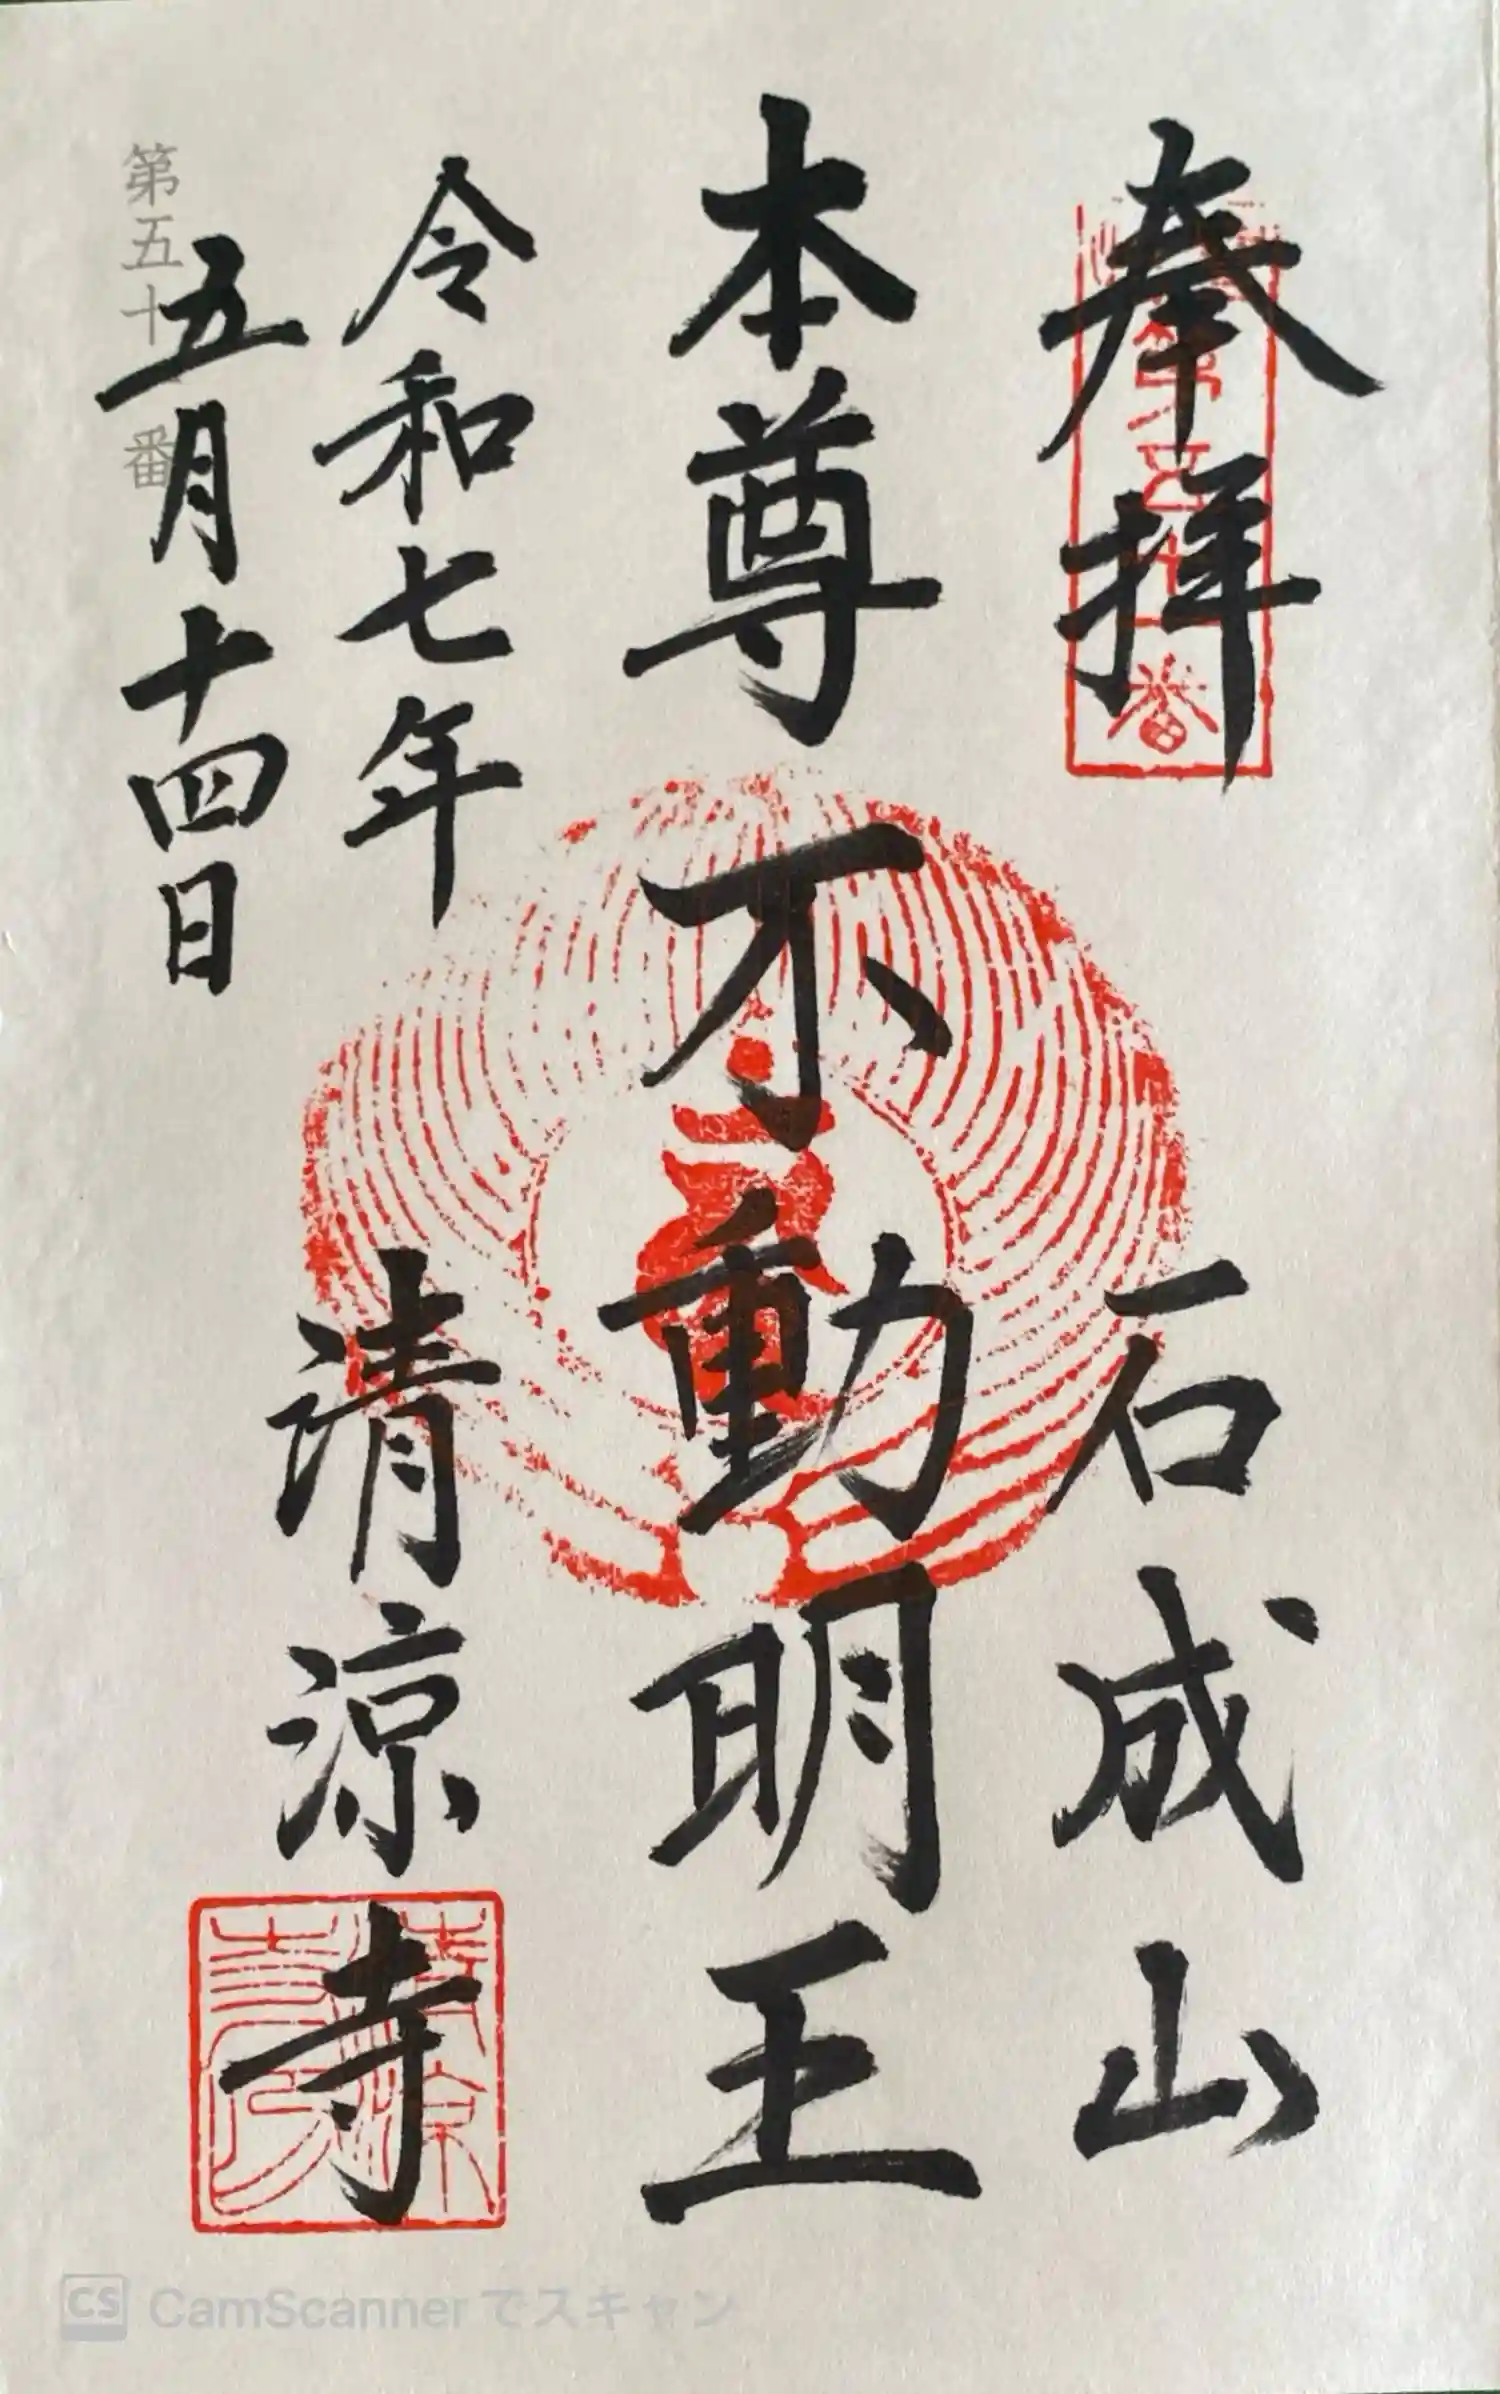 奉拝
石成山
本尊
不動明王
令和七年
五月十四日
清凉寺
第五十 番
CamScanner でスキャン